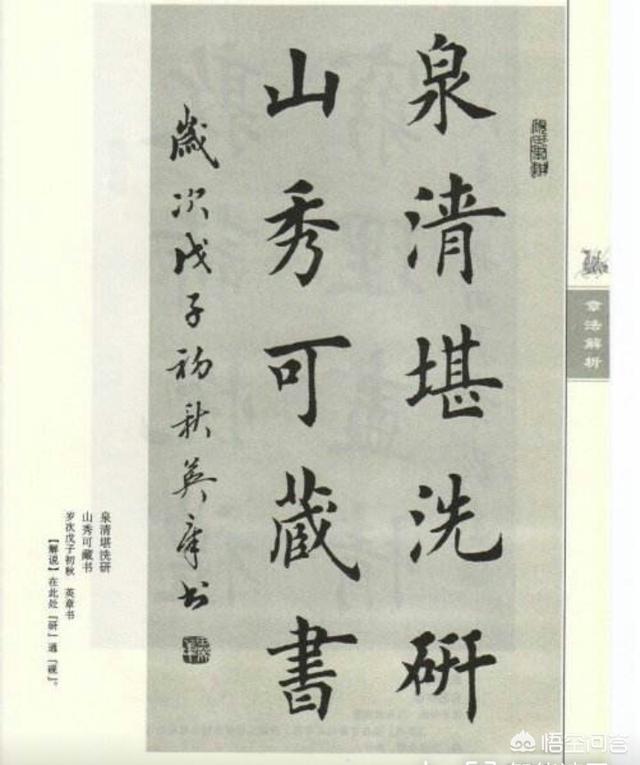 泉清堪洗研
山秀可蔵書
歲次戊子初秋英章书
章法解析
泉清堪洗研
山秀可藏书
岁次戊子初秋 英章书
【解说】在此处『研』通『砚』。
悟空问答